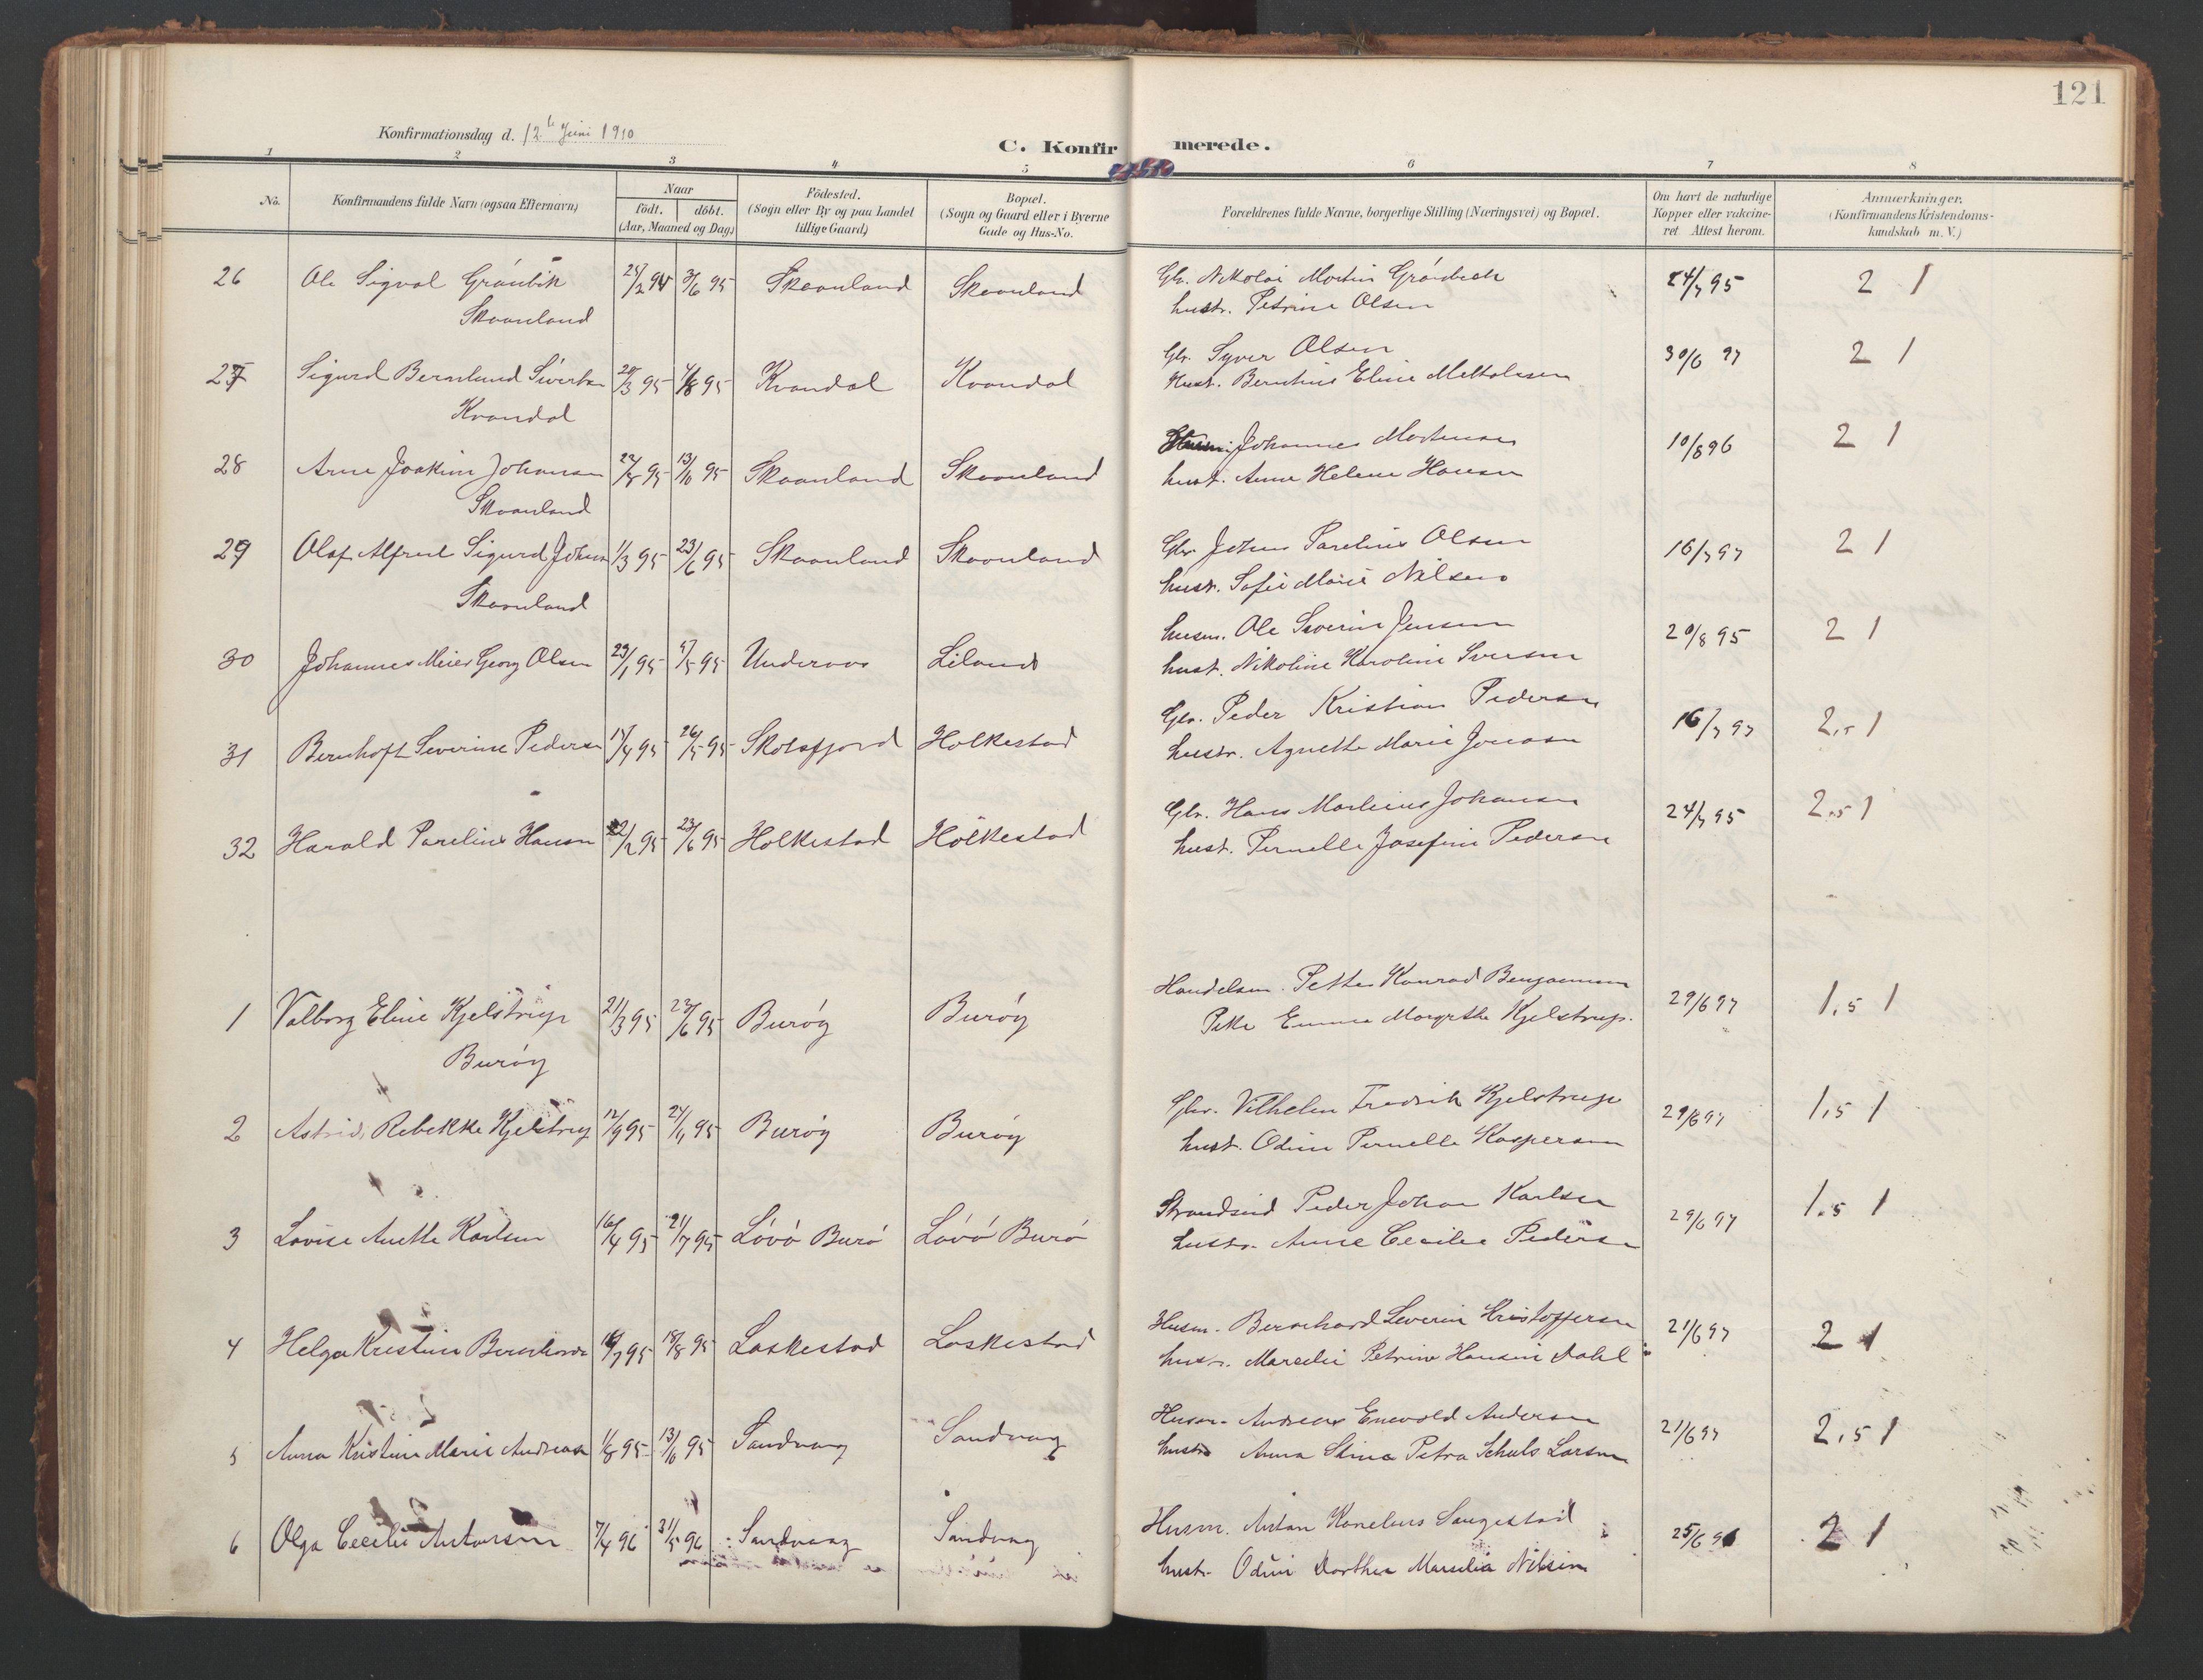 121
Konfirmationsdag d. 12te Juni 1910
C. Konfirmerede.
1 2 3 4 5 6 7 8
No.
Konfirmandens fulde Navn (ogsaa Efternavn)
Naar
födt. döbt.
(Aar, Maaned og Dag)
Födested.
(Sogn eller By og paa Landet
tillige Gaard)
Bopæl.
(Sogn og Gaard eller i Byerne
Gade og Hus-No.
Forældrenes fulde Navne, borgerlige Stilling (Næringsvei) og Bopæl.
Om havt de naturlige
Kopper eller vakcine-
ret. Attest herom.
Anmærkninger.
(Konfirmandens Kristendoms-
kundskab m. V.)
26 Ole Sigval Grønbek 3/6 95 Skaanland Skaanland Gbr. Nikolai Martin Grønbeck 24/7 95 2 1
Skaanland hustr. Petrine Olsen
27 Sigurd Berntund Sivertsen 4/8 95 Kvandal Kvandal Gbr. Syver Olsen 30/6 97 2 1
Kvandal Hust. Eline
28 Arne Joakim Johansen 13/10 95 Skaanland Skaanland Johannes Mortensen 10/8 96 2 1
Skaanland hust. Anne Helene Hansen
29 Olaf Alfred Sigurd Johns 1/3 95 23/6 95 Skaanland Skaanland Gbr. Johns Parelius Olsen 16/7 97 2 1
Skaanland hustr. Sofie Marie Nilsen
30 Johannes Meier Georg Olsen 29/1 95 5/5 95 Underaas Liland husm. Ole Severin Jensen 20/8 95 2 1
hust. Nikoline Karoline
31 Bernhoft Severine Pedersen 26/5 95 Skotsfjord Holkestad Gbr. Peder Kristian Pedersen 16/7 97 2,5 1
hustr. Agnethe Marie Jonasen
32 Harald Parelius Hansen 22/2 95 23/6 95 Holkestad Holkestad Gbr. Hans Martinus Johansen 24/7 95 2,5 1
hust. Pernelle Josefine Pedersen
1 Valborg Eline Kjelstrup 21/3 95 23/6 95 Burøy Burøy Handelsm. Petter Konrad Benjaminsen 29/6 97 1,5 1
Burøy Pike Emma Margrethe Kjelstrup.
2 Astrid Rebekke Kjelstrup 12/9 95 24/11 95 Burøy Burøy Gbr. Vilhelm Fredrik Kjelstrup 29/6 97 1,5 1
hust. Odine Pernelle Kaspersen
3 Lovise Anette Karlsen 16/4 95 21/7 95 Løvø Burø Løvø Burø Strandsid Peder Johan Karlsen 29/6 97 1,5 1
hustr. Anne Cecilie Pedersen
4 Helga Kristine 18/8 95 Laskestad Laskestad Husm. Bernhard Severin Kristoffersen 21/6 97 2 1
hustr. Marselie Petrine Hansine Dahl
5 Anna Kristine Marie Andreasen 1/8 95 13/10 95 Sandvaag Sandvaag Husm. Andreas Enevold Andersen 21/6 97 2,5 1
hustr Anna Stina Petra Schuls Larsen
6 Olga Cecilie Antonsen 7/4 96 31/5 96 Sandvaag Sandvaag Husm. Anton Kornelius Saugestad 25/6 2 1
hust. Odine Dorthea Marselia Nilsen